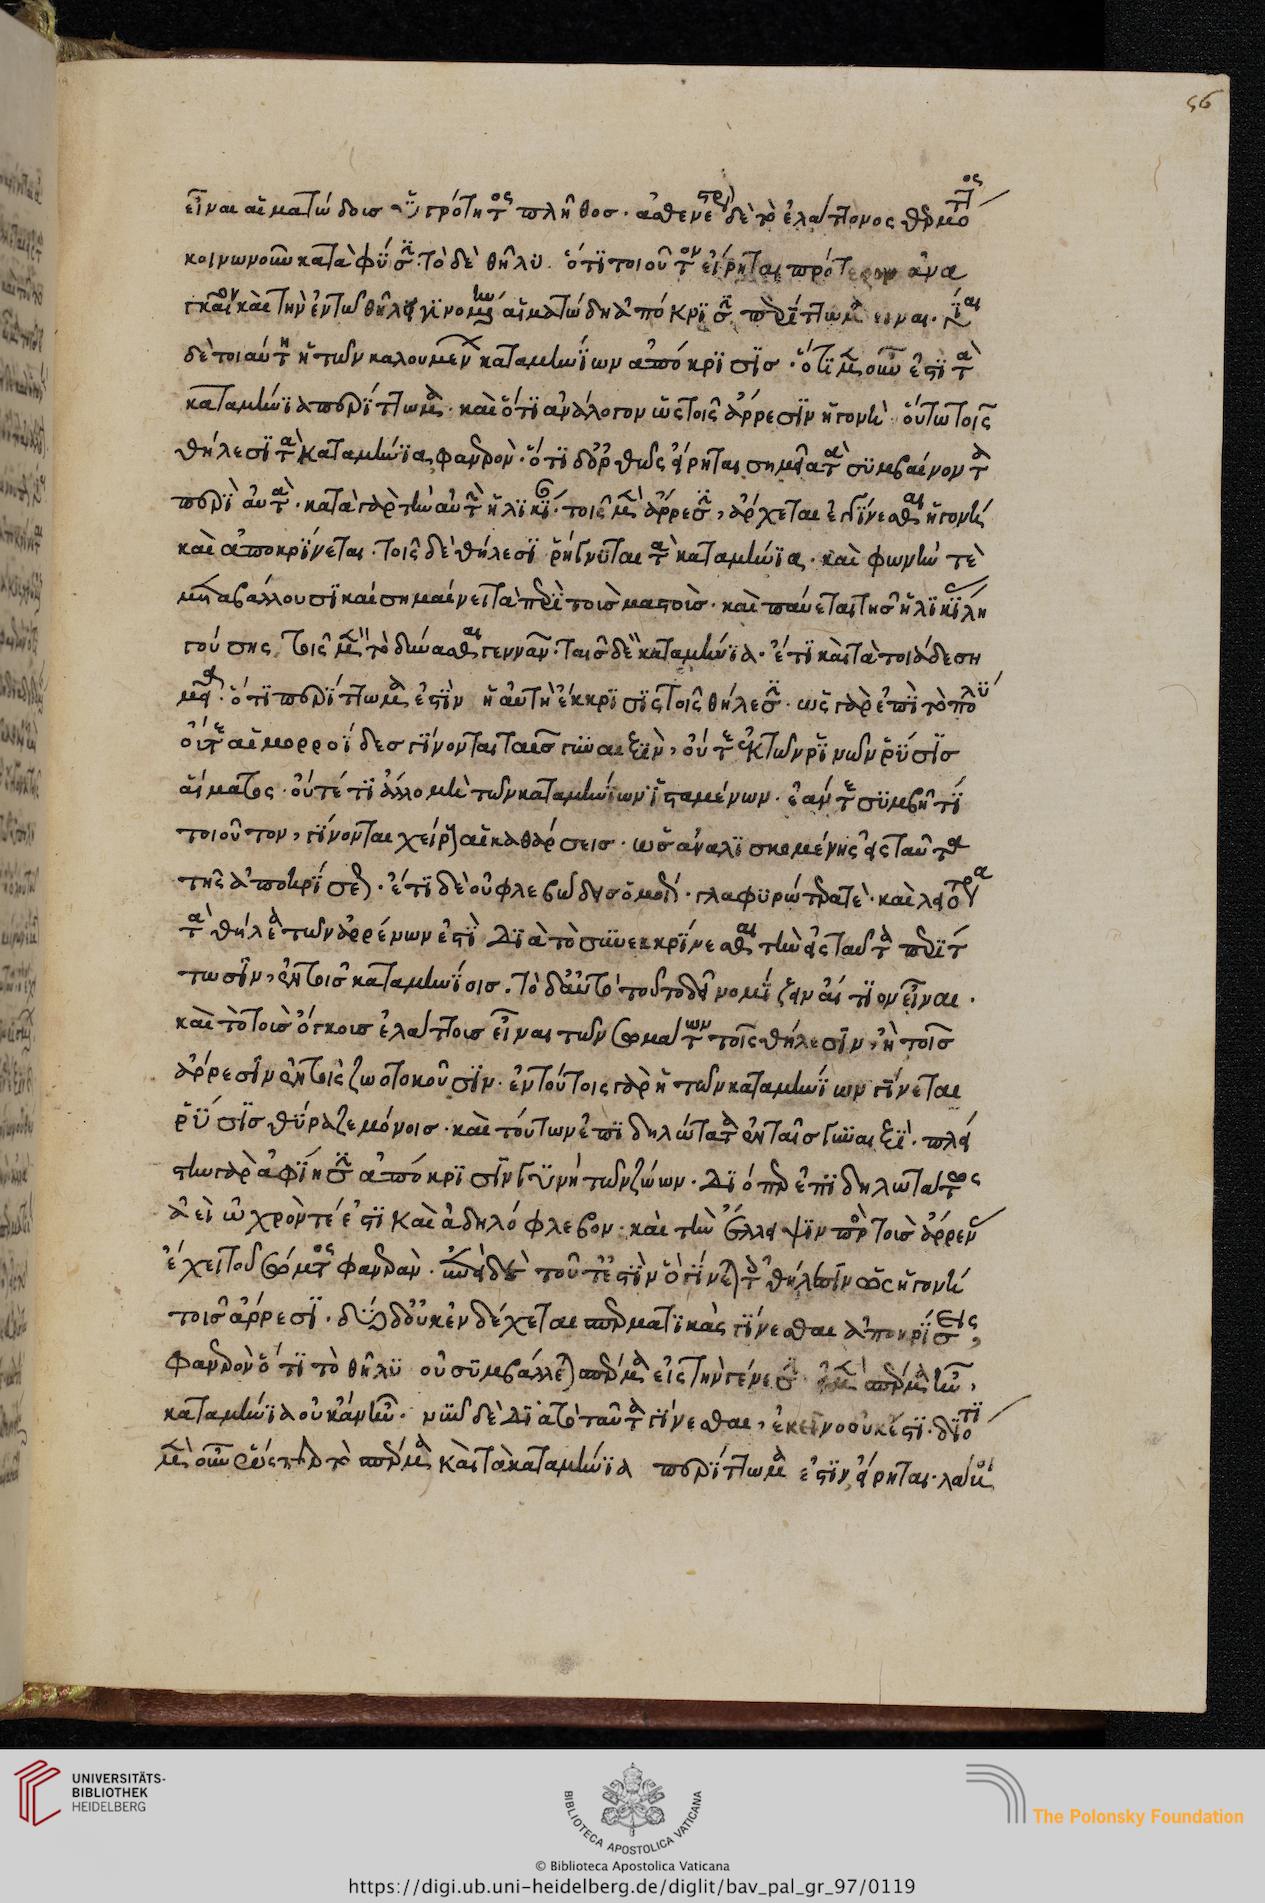 εἶναι αἱματώδοις ὑγρότητος πλῆθος · ἀσθενέστερον δὲ τὸ ἐλάττονος θερμότητος
κοινωνοῦν κατὰ φύσιν · τὸ δὲ θῆλυ · ὅτι τοιοῦτον εἴρηται πρότερον ἀνα
γκαῖον καὶ τὴν ἐν τῷ θήλει γινομένην αἱματώδη ἀπόκρισιν περίττωμα εἶναι · γίνεται
δὲ τοιαύτη ἡ τῶν καλουμένων καταμηνίων ἀπόκρισις · ὅτι μὲν οὖν ἐστὶ τὰ
καταμήνια περίττωμα · καὶ ὅτι ἀνάλογον ὡς τοῖς ἄρρεσιν ἡ γονὴ · οὕτω τοῖς
θήλεσι τὰ καταμήνια, φανερόν · ὅτι δ' ὀρθῶς εἴρηται σημεῖα τὰ συμβαίνοντα
περὶ αὐτά · κατὰ γὰρ τὴν αὐτὴν ἡλικίαν · τοῖς μὲν ἄρρεσιν, ἄρχεται ἐγγίνεσθαι ἡ γονὴ
καὶ ἀποκρίνεται · τοῖς δὲ θήλεσι ῥήγνυται τὰ καταμήνια · καὶ φωνήν τὲ
μεταβάλλουσι καὶ σημαίνει τὰ περὶ τοὶς μαστοὶς · καὶ παύεται τῆς ἡλικίας λη
γούσης τοῖς μὲν τὸ δύνασθαι γεννᾶν · ταῖς δὲ καταμήνια · ἔτι καὶ τὰ τοιάδε ση
μεῖα · ὅτι περίττωμα ἐστὶν ἡ αὐτὴ ἔκκρισις τοῖς θήλεσιν · ὡς γὰρ ἐπὶ τὸ πολὺ
οὔτε αἱμορροΐδες γίνονται ταῖς γυναιξὶν, οὔτε ἐκ τῶν ῥινῶν ῥύσις
αἵματος · οὔτέ τι ἄλλο μὴ τῶν καταμηνίων ἱσταμένων · ἐάν τε συμβῆ τι
τοιοῦτον, γίνονται χείρους αἱ καθάρσεις · ὡς ἀναλισκομένης εἰς ταῦτα
τῆς ἀποκρίσεως · ἔτι δὲ οὐ φλεβώδης ὁμοίως · γλαφυρώτερα τὲ · καὶ λειότερα
τὰ θήλεα τῶν ἀρρένων ἐστὶ διὰ τὸ συνεκκρίνεσθαι τὴν εἰς ταῦτα περίτ
τωσιν, ἐν τοῖς καταμηνίοις · τὸ δ' αὐτὸ τοῦτο δεῖ νομίζειν αἴτιον εἶναι ·
καὶ τὸ τοὶς ὄγκοις ἐλάττοις εἶναι τῶν σωμάτων τοῖς θήλεσιν, ἢ τοῖς
ἄρρεσιν ἐν τοῖς ζωοτοκοῦσιν · ἐν τούτοις γὰρ ἡ τῶν καταμηνίων γίνεται
ῥύσις θύραζε μόνοις · καὶ τούτων ἐπιδηλώτατα ἐν ταῖς γυναιξὶ · πλεί
στην γὰρ ἀφίησιν ἀπόκρισιν γυνὴ τῶν ζώων · διόπερ ἐπιδηλωτάτως
ἀεὶ ὠχρὸν τέ ἐστι καὶ ἀδηλόφλεβον · καὶ τὴν ἔλλειψιν πρὸς τοὶς ἄρρενας
ἔχει τοῦ σώματος φανερὰν · ἐπεὶ δὲ τοῦτ' ἐστὶν ὃ γίνεται τοῖς θήλεσιν ὡς ἡ γονὴ
τοῖς ἄρρεσι · δύο δ' οὐκ ἐνδέχεται σπερματικὰς γίνεσθαι ἀποκρίσεις,
φανερὸν ὅτι τὸ θῆλυ οὐ συμβάλλεται σπέρμα εἰς τὴν γένεσιν · εἰ μὲν σπέρμα ἦν,
καταμήνια οὐκ ἂν ἦν · νῦν δὲ διὰ τὸ ταῦτα γίνεσθαι, ἐκεῖνο οὐκ ἔστι · διότι
μὲν οὖν ὥσπερ τὸ σπέρμα καὶ τὰ καταμήνια περίττωμα ἐστὶν εἴρηται · λάβοι
56
UNIVERSITÄTS-
BIBLIOTHEK
HEIDELBERG
BIBLIOTECA APOSTOLICA VATICANA
The Polonsky Foundation
© Biblioteca Apostolica Vaticana
https://digi.ub.uni-heidelberg.de/diglit/bav_pal_gr_97/0119